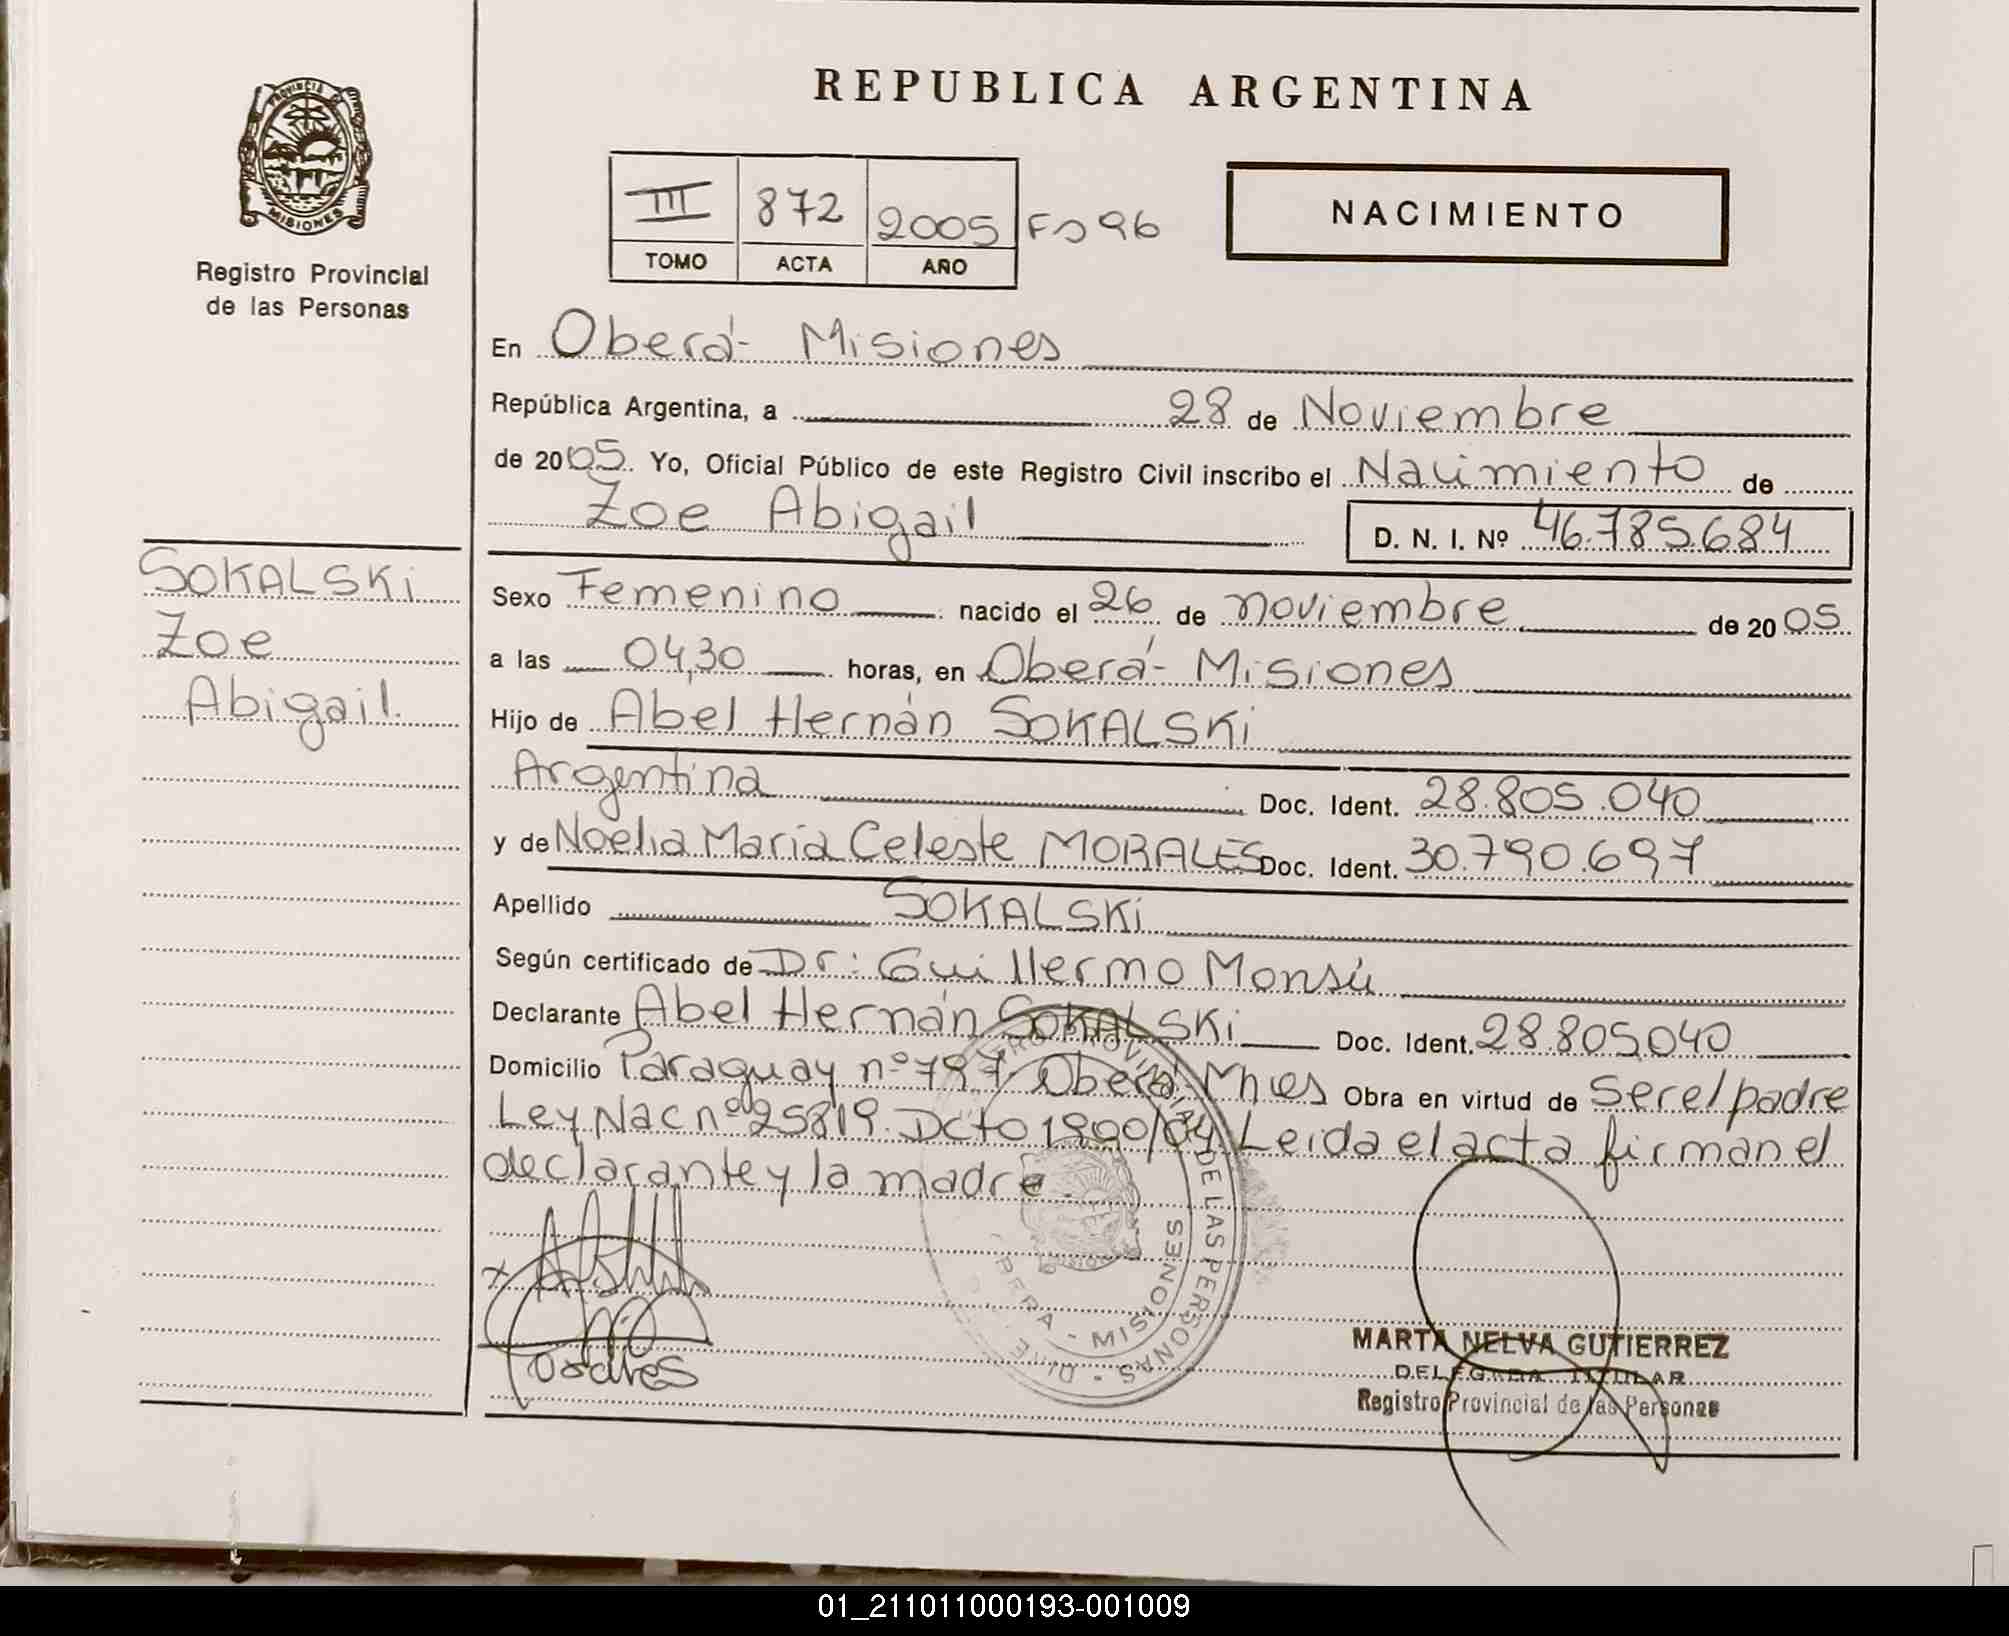 REPUBLICA ARGENTINA
PROVINCIA DE
MISIONES
Registro Provincial
de las Personas
III 872 2005 Fo 96
TOMO ACTA AÑO
NACIMIENTO
En Oberá - Misiones
República Argentina, a 28 de Noviembre
de 2005. Yo, Oficial Público de este Registro Civil inscribo el Nacimiento de
Zoe Abigail
D. N. I. Nº 46.785.684
SOKALSKi
Zoe
Abigail.
Sexo Femenino nacido el 26 de noviembre de 2005
a las 04,30 horas, en Oberá - Misiones
Hijo de Abel Hernán SOKALSKi
Argentina Doc. Ident. 28.805.040
y de Noelia María Celeste MORALES Doc. Ident. 30.790.697
Apellido SOKALSKi
Según certificado de Dr: Guillermo Monsú
Declarante Abel Hernán SOKALSKi Doc. Ident. 28.805040
Domicilio Paraguay nº 797 Oberá Mnes Obra en virtud de Ser el padre
Ley Nac nº 25819. Dcto 1900/04. Leida el acta firman el
declarante y la madre.
PROVINCIAL DE LAS PERSONAS
MISIONES
MARTA NELVA GUTIERREZ
DELEGADA TITULAR
Registro Provincial de las Personas
01_211011000193-001009